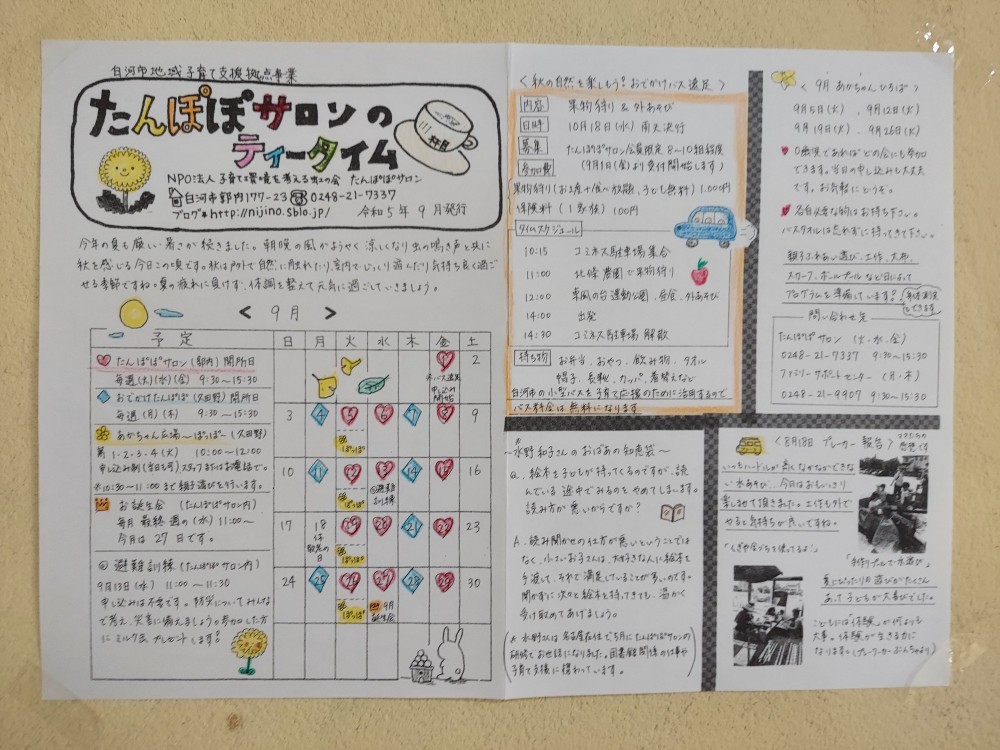 白河市地域子育て支援拠点事業
たんぽぽサロンの
ティータイム
NPO法人 子育て環境を考える虹の会 たんぽぽサロン
白河市郭内177-23 ☎0248-21-7337
ブログ* http://nijino.sblo.jp/ 令和5年 9月発行
今年の夏も厳しい暑さが続きました。朝晩の風がようやく涼しくなり虫の鳴き声と共に
秋を感じる今日この頃です。秋は戸外で自然に触れたり、室内でじっくり遊んだり気持ち良く過ご
せる季節ですね。夏の疲れに負けず、体調を整えて元気に過ごしていきましょう。
< 9月 >
予定
たんぽぽサロン(郭内)開所日
毎週(火)(水)(金) 9:30〜15:30
おでかけたんぽぽ(久田野)開所日
毎週(月)(木) 9:30〜15:30
あかちゃん広場〜ぽっぽ〜(久田野)
第1・2・3・4(火) 10:00〜12:00
申し込み制(当日も可)スタッフまたはお電話で。
※10:30〜11:00まで親子遊びを行います。
お誕生会 (たんぽぽサロン内)
毎月最終週の(水) 11:00〜
今月は27日です。
避難訓練(たんぽぽサロン内)
9月13日(水) 11:00〜11:30
申し込みは不要です。防災についてみんな
で考え、災害に備えましょう。参加した方
にミルク缶プレゼントします!
日 月 火 水 木 金 土
1 2
※バス遠足
申し込み
開始
3 4 5 6 7 8 9
ぽっぽ
10 11 12 13 14 15 16
ぽっぽ
避難
訓練
17 18 19 20 21 22 23
休
敬老の
日
ぽっぽ
24 25 26 27 28 29 30
ぽっぽ
9月
誕生会
<秋の自然を楽しもう!おでかけバス遠足>
内容 果物狩り&外あそび
日時 10月18日(水) 雨天決行
募集 たんぽぽサロン会員限定 8〜10組程度
(9月1日(金)より受付開始します)
参加費
果物狩り(お土産付食べ放題、子ども無料) 1,000円
保険料(1家族) 100円
タイムスケジュール
10:15 コミネス駐車場集合
11:00 北條農園で果物狩り
12:00 東風の台運動公園・昼食・外あそび
14:00 出発
14:30 コミネス駐車場解散
持ち物 お弁当、おやつ、飲み物、タオル
帽子、長靴、カッパ、着替えなど
白河市の小型バスを子育て応援のために活用するので
バス料金は無料になります
〜水野和子さんのおばあの知恵袋〜
Q、絵本を子どもが持ってくるのですが、読
んでいる途中でみるのをやめてしまいます。
読み方が悪いからですか?
A、読み聞かせの仕方が悪いということでは
なく、小さいお子さんは、大好きな人に絵本を
手渡して、それで満足していることが多いのです。
聞かずに次々と絵本を持ってきても、温かく
受け取めてあげましょう。
※水野さんは名古屋在住で5月にたんぽぽサロンの
研修でお世話になりました。図書館関係の仕事や
子育て支援に携わっています。
<9月 あかちゃんひろば>
9月5日(火)、9月12日(火)
9月19日(火)、9月26日(火)
0歳児であればどの会にも参加
できます。当日の申し込みも大丈夫
です。お気軽にどうぞ。
各自必要な物はお持ち下さい。
バスタオルは忘れずに持ってきて下さい。
親子ふれあい遊び、工作、太鼓、
スカーフ、ボールプールなど日によって
プログラムを準備しています!
身体測定も
できます
問い合わせ先
たんぽぽサロン (火・水・金)
0248-21-7337 9:30〜15:30
ファミリーサポートセンター (月・木)
0248-21-9907 9:30〜15:30
<8月18日 プレーカー報告>
いつもハードルが高くなかなかできな
い水あそび、今日はおもいっきり
楽しませて頂きました。工作も外で
やると気持ちが良いですね。
「くぎや金づちも使ってるよ!」
「手作りプールで水遊び」
夏にぴったりの遊びがたくさん
あって子どもが大喜びでした。
こどもには「体験」が何よりも
大事。体験が生きる力に
なります。(プレーワーカーぶんちゃより)